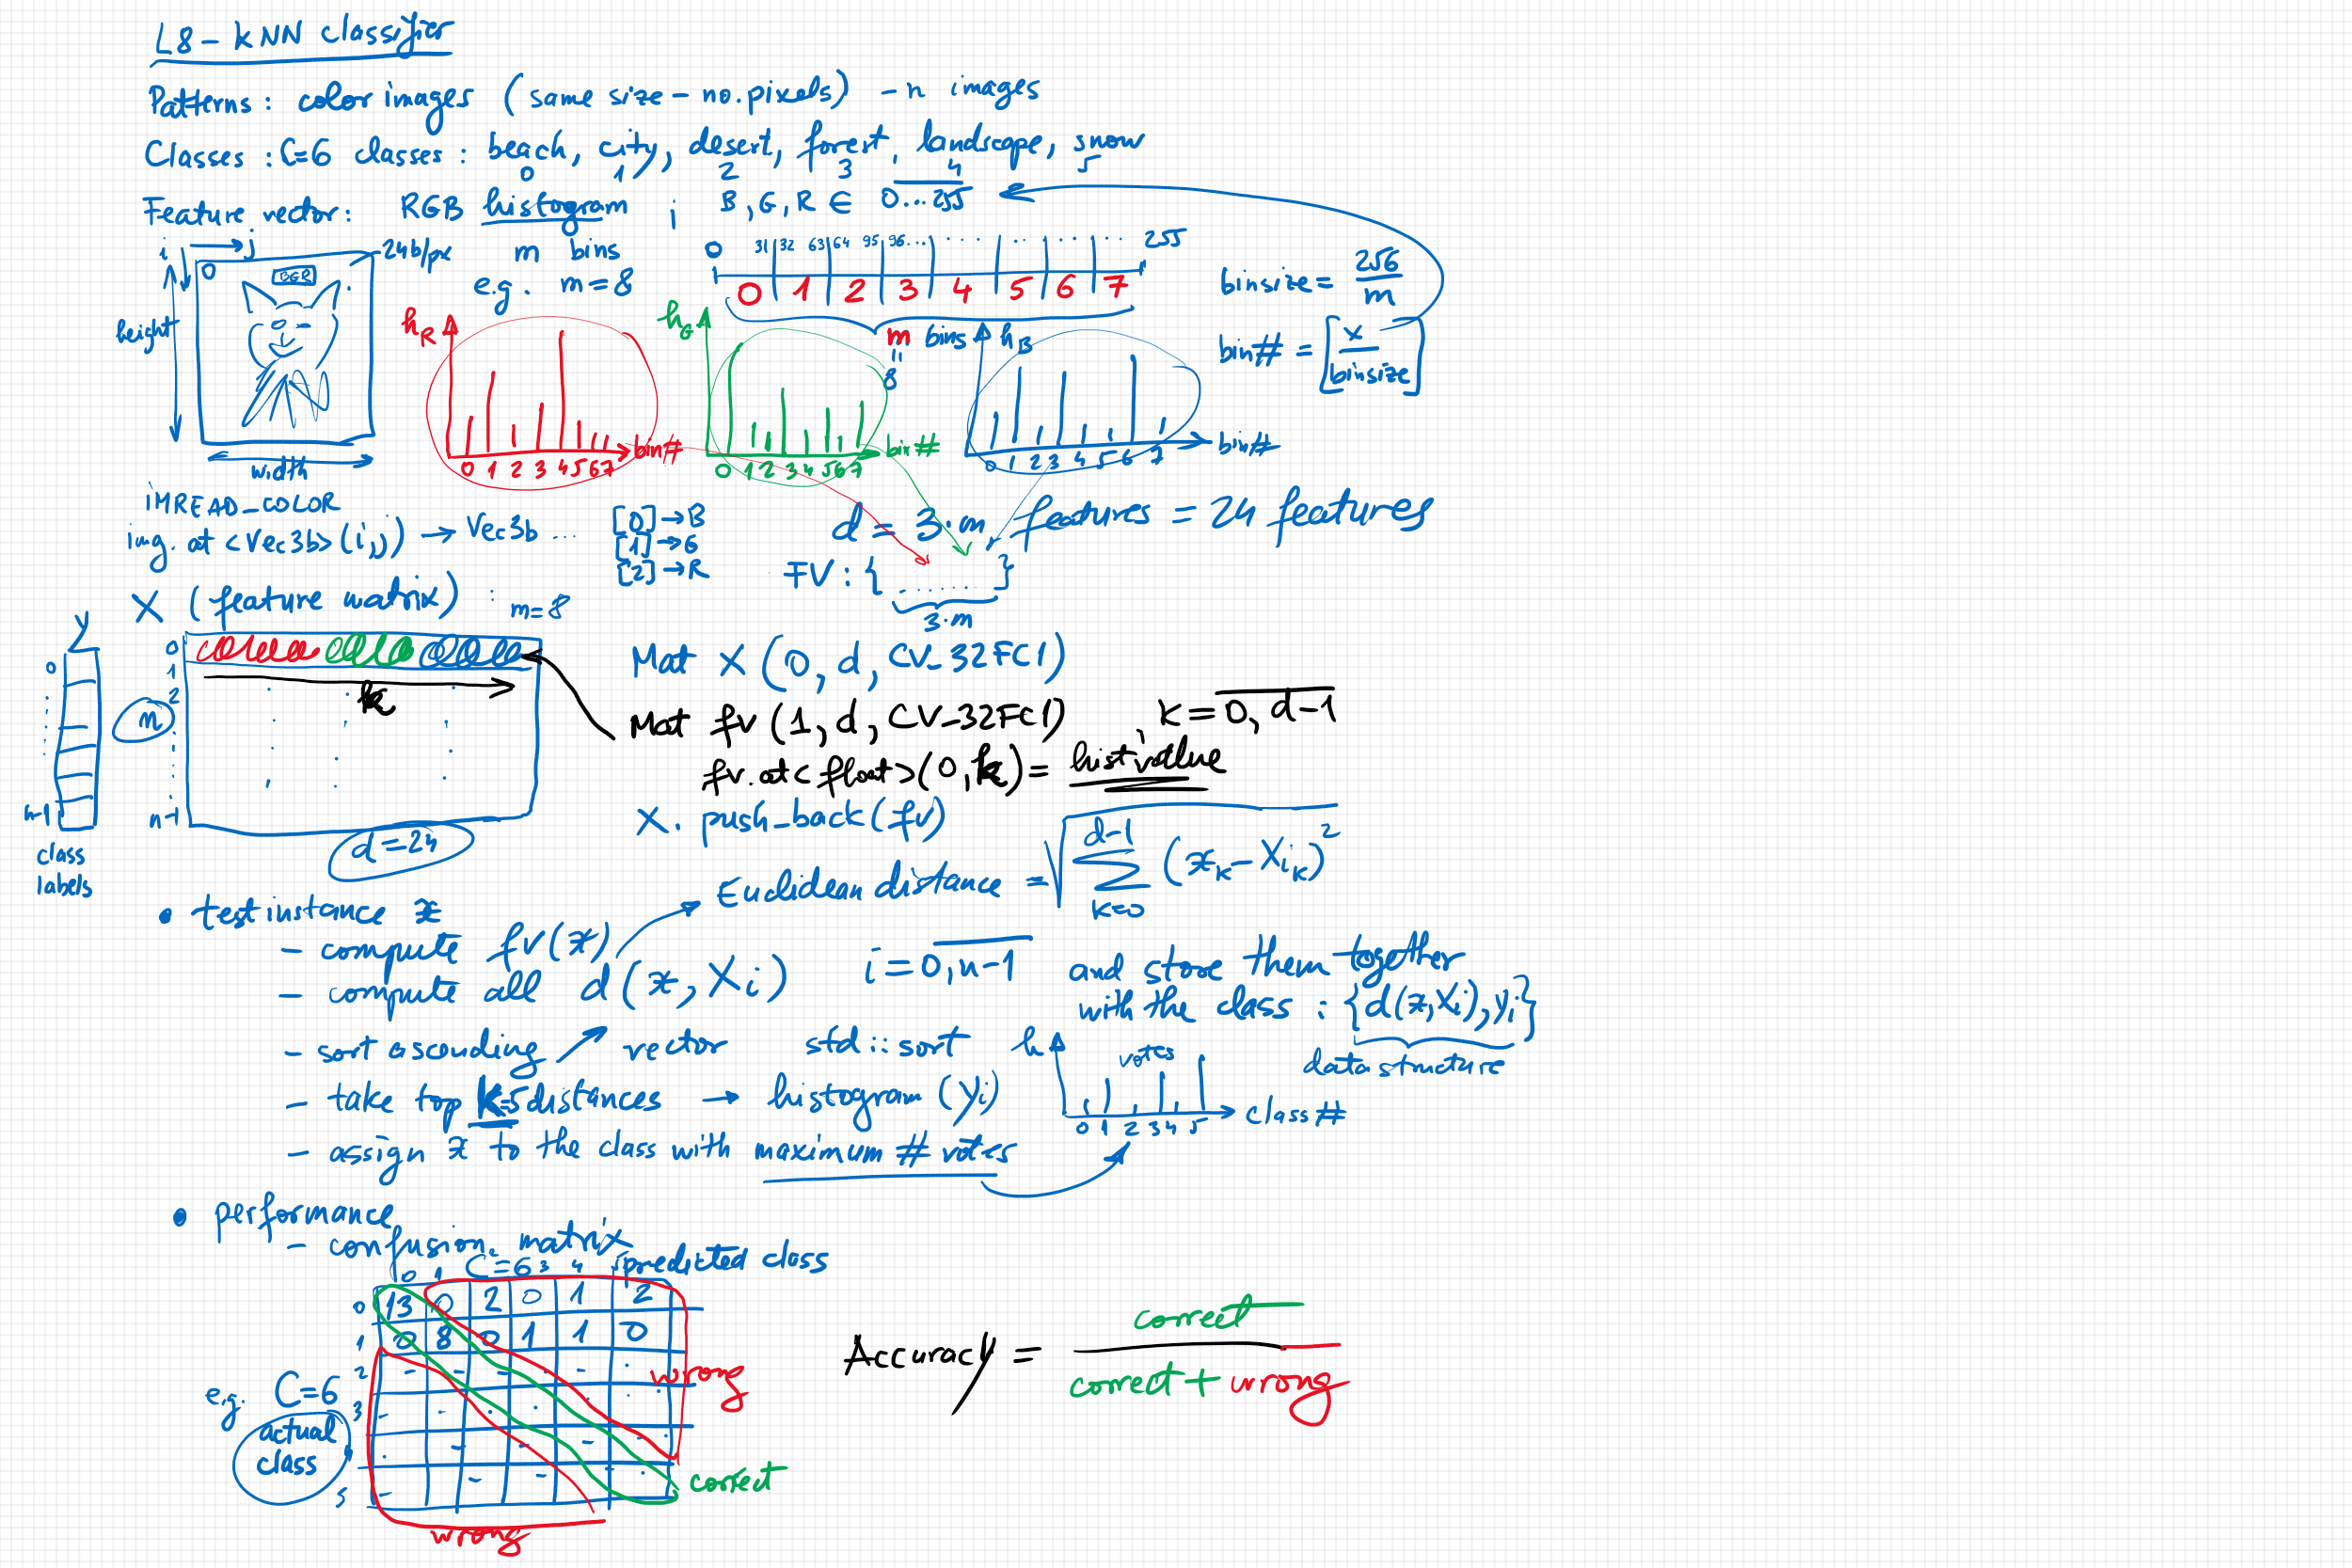 L8 - kNN classifier
Patterns: color images (same size - no. pixels) - n images
Classes: C=6 classes: beach, city, desert, forest, landscape, snow
0 1 2 3 4 5
Feature vector: RGB histogram ; B,G,R ∈ 0...255
i j
0
BGR
24b/px
height
width
m bins
e.g. m=8
0 31 32 63 64 95 96... 255
0 1 2 3 4 5 6 7
m bins
"
8
binsize = 256 / m
bin# = [x / binsize]
hR
0 1 2 3 4 5 6 7 bin#
hG
0 1 2 3 4 5 6 7 bin#
hB
0 1 2 3 4 5 6 7 bin#
IMREAD_COLOR
img.at<Vec3b>(i,j) → Vec3b ...
[0] → B
[1] → G
[2] → R
d = 3·m features = 24 features
FV: {.......}
3·m
X (feature matrix) : m=8
y
0
n-1
class
labels
0
1
2
n
n-1
k
d=24
Mat X(0, d, CV_32FC1)
Mat fv(1, d, CV_32FC1) k=0,d-1
fv.at<float>(0,k) = hist value
X.push_back(fv)
Euclidean distance = √ d-1 Σ k=0 (xk - Xik)²
• test instance x
- compute fv(x)
- compute all d(x, Xi) i=0,n-1 and store them together
with the class: {d(x,Xi), yi}
data structure
- sort ascending ↗ vector std::sort
- take top K=5 distances → histogram (yi)
h votes
0 1 2 3 4 5 class#
- assign x to the class with maximum # votes
• performance
- confusion matrix
C=6 predicted class
0 1 3 4 5
0 13 0 2 0 1 2
1 0 8 0 1 1 0
2
3
4
5
e.g. C=6
actual
class
wrong
correct
wrong
Accuracy = correct / correct + wrong